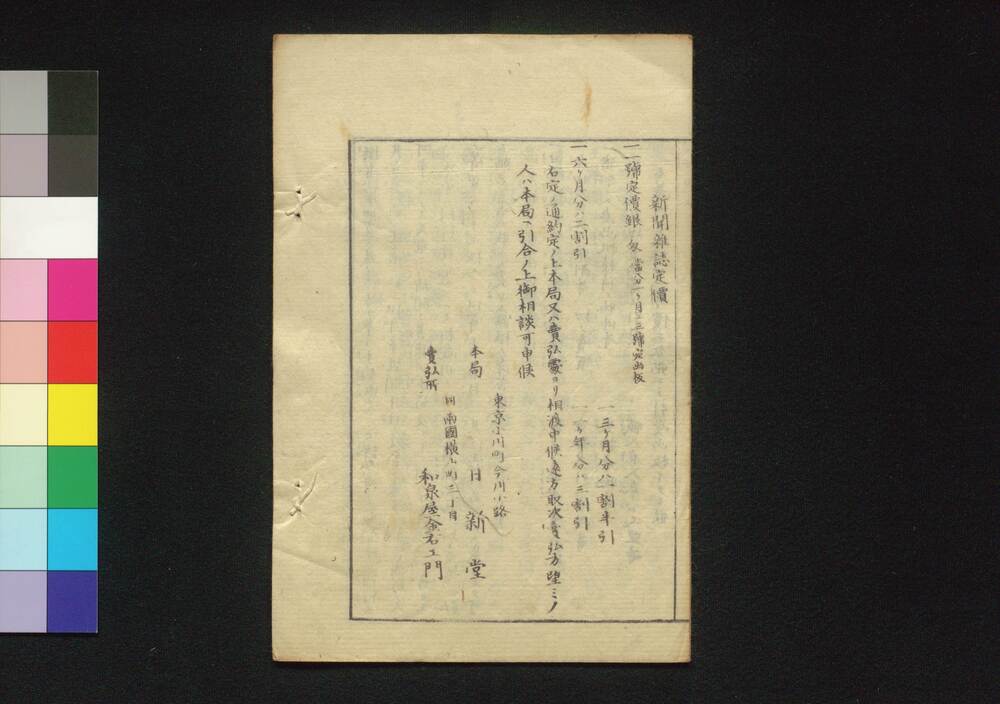 新聞雜誌定價
一一號定價銀 匁 當分一ヶ月ニ三號宛出板
一三ヶ月分ハ一割半引
一六ヶ月分ハ二割引
一一ヶ年分ハ三割引
右定ノ通約定ノ上本局又ハ賣弘處ヨリ相渡申候遠方取次賣弘方望ミノ
人ハ本局ヘ引合ノ上御相談可申候
東京小川町今川小路
本局 日新堂
同兩國横山町三丁目
賣弘所 和泉屋金右エ門